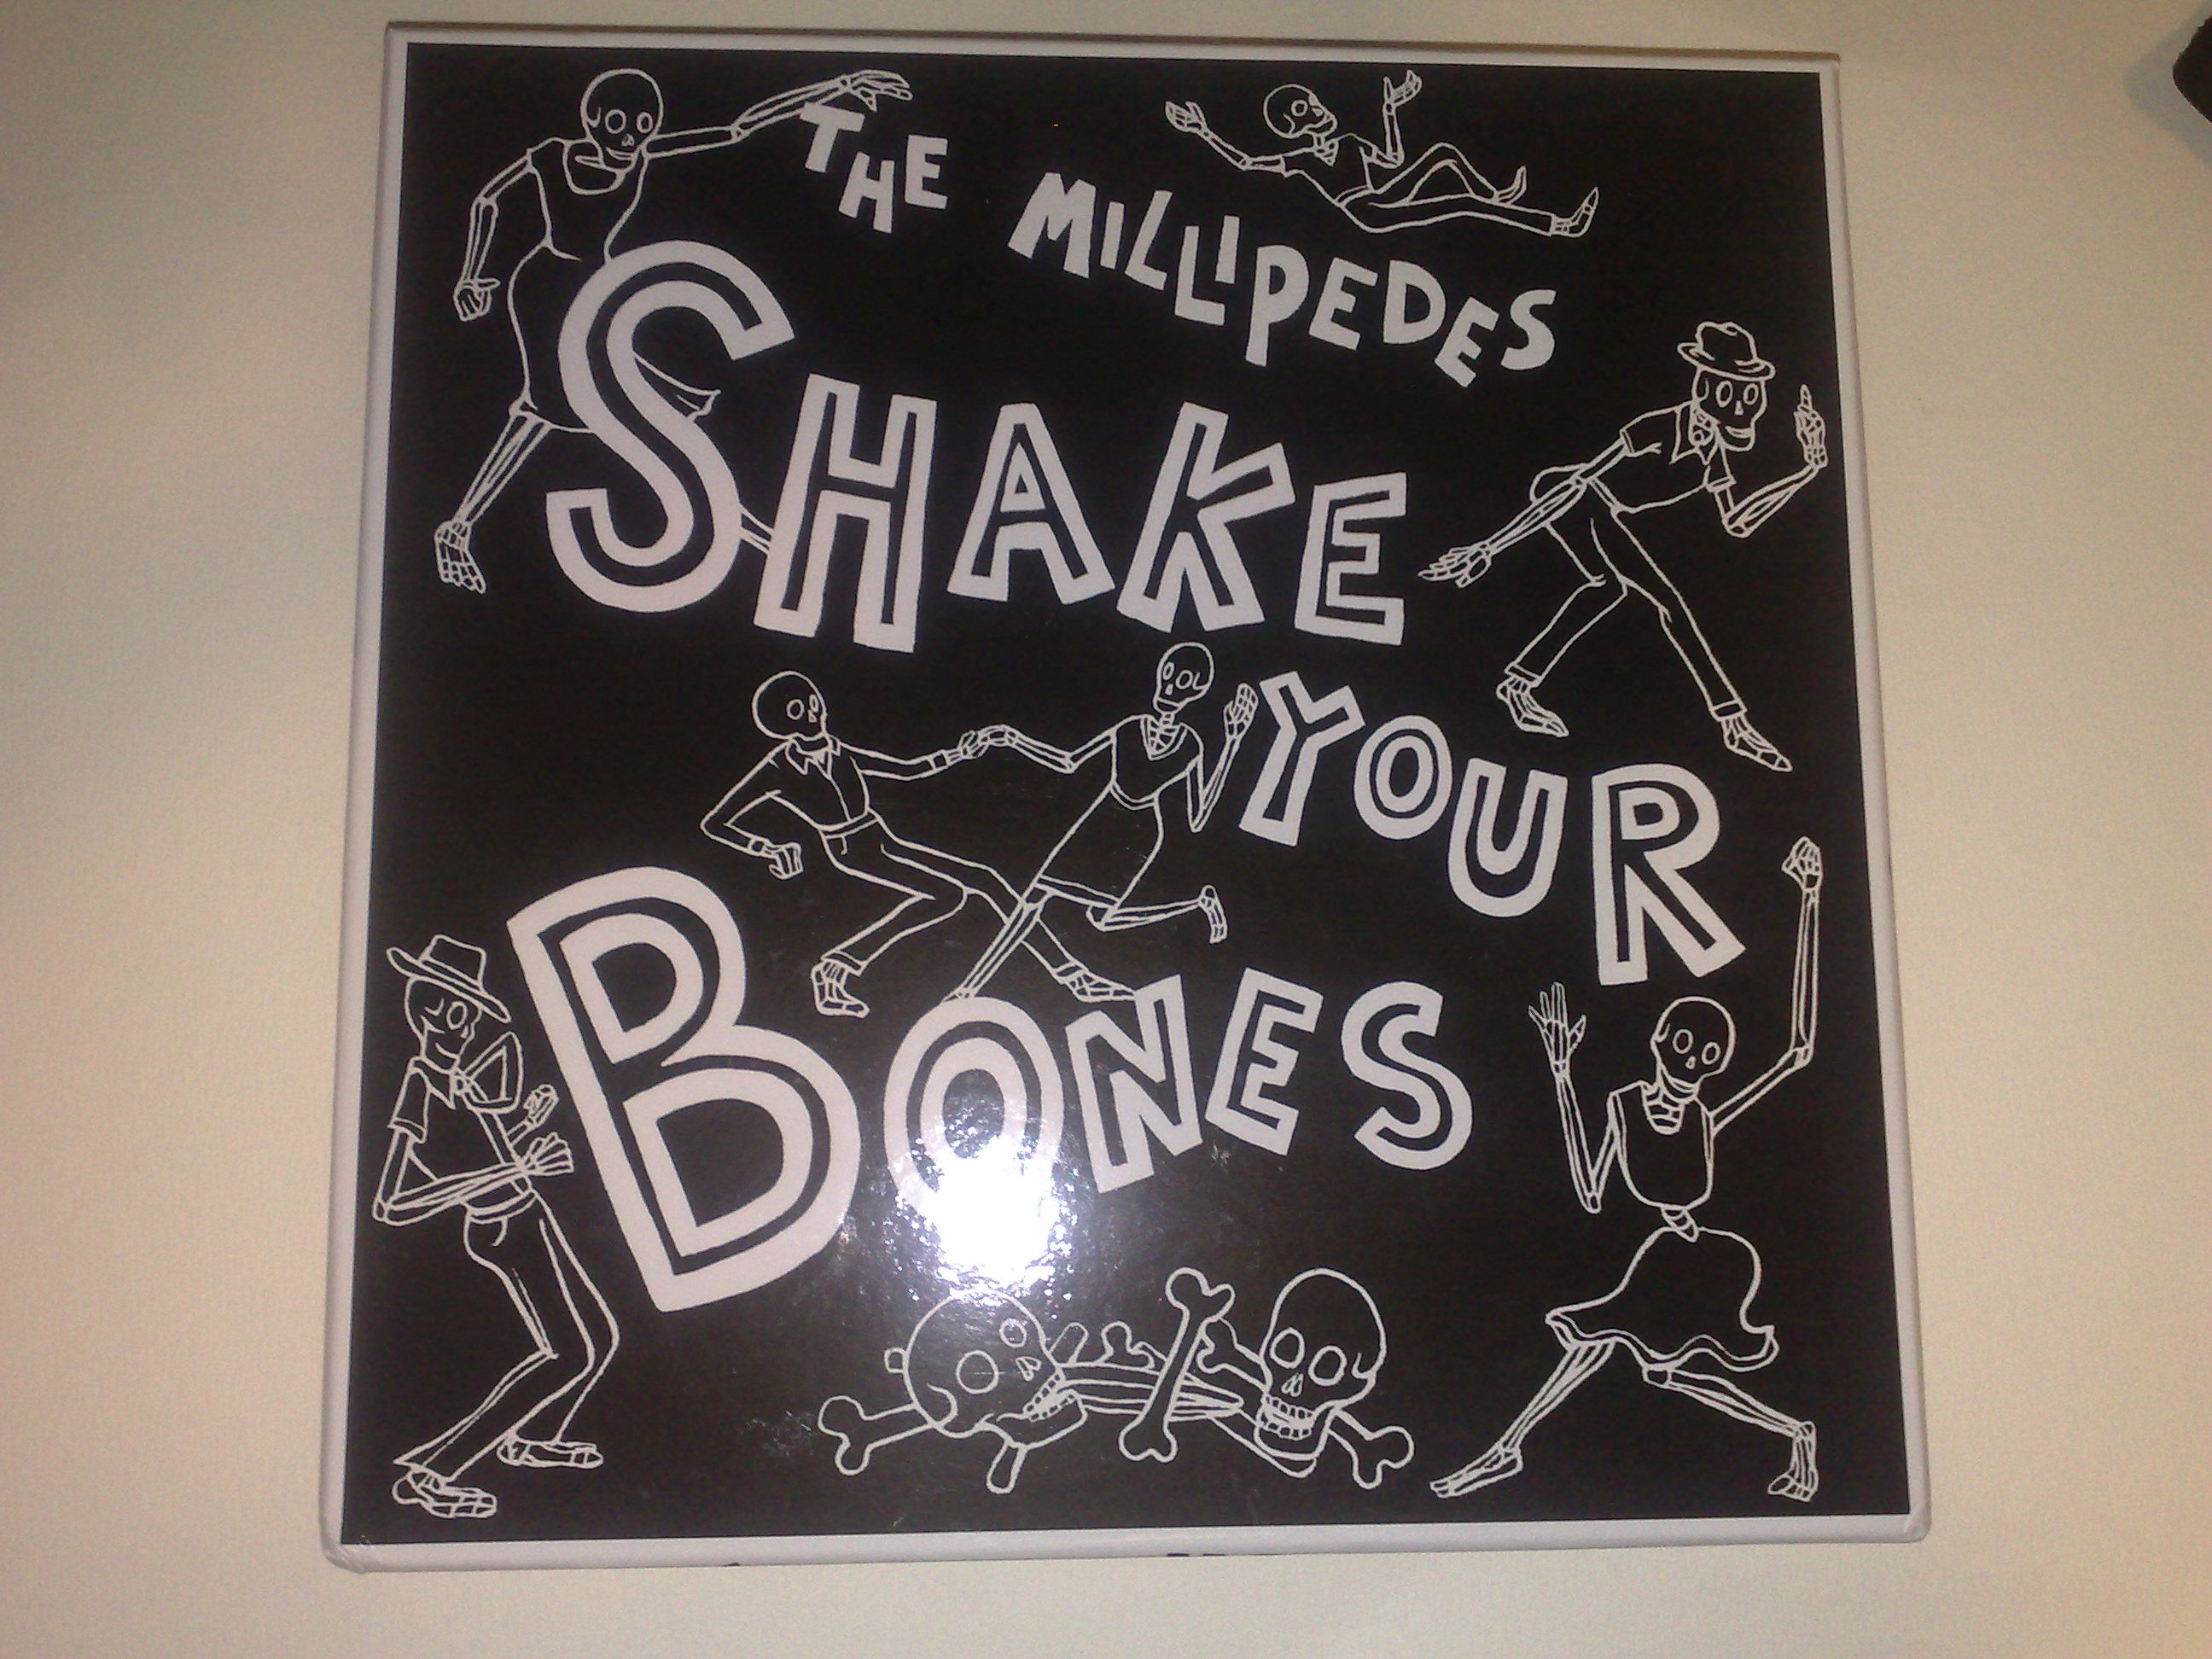 THE MILLIPEDES
SHAKE
YOUR
BONES